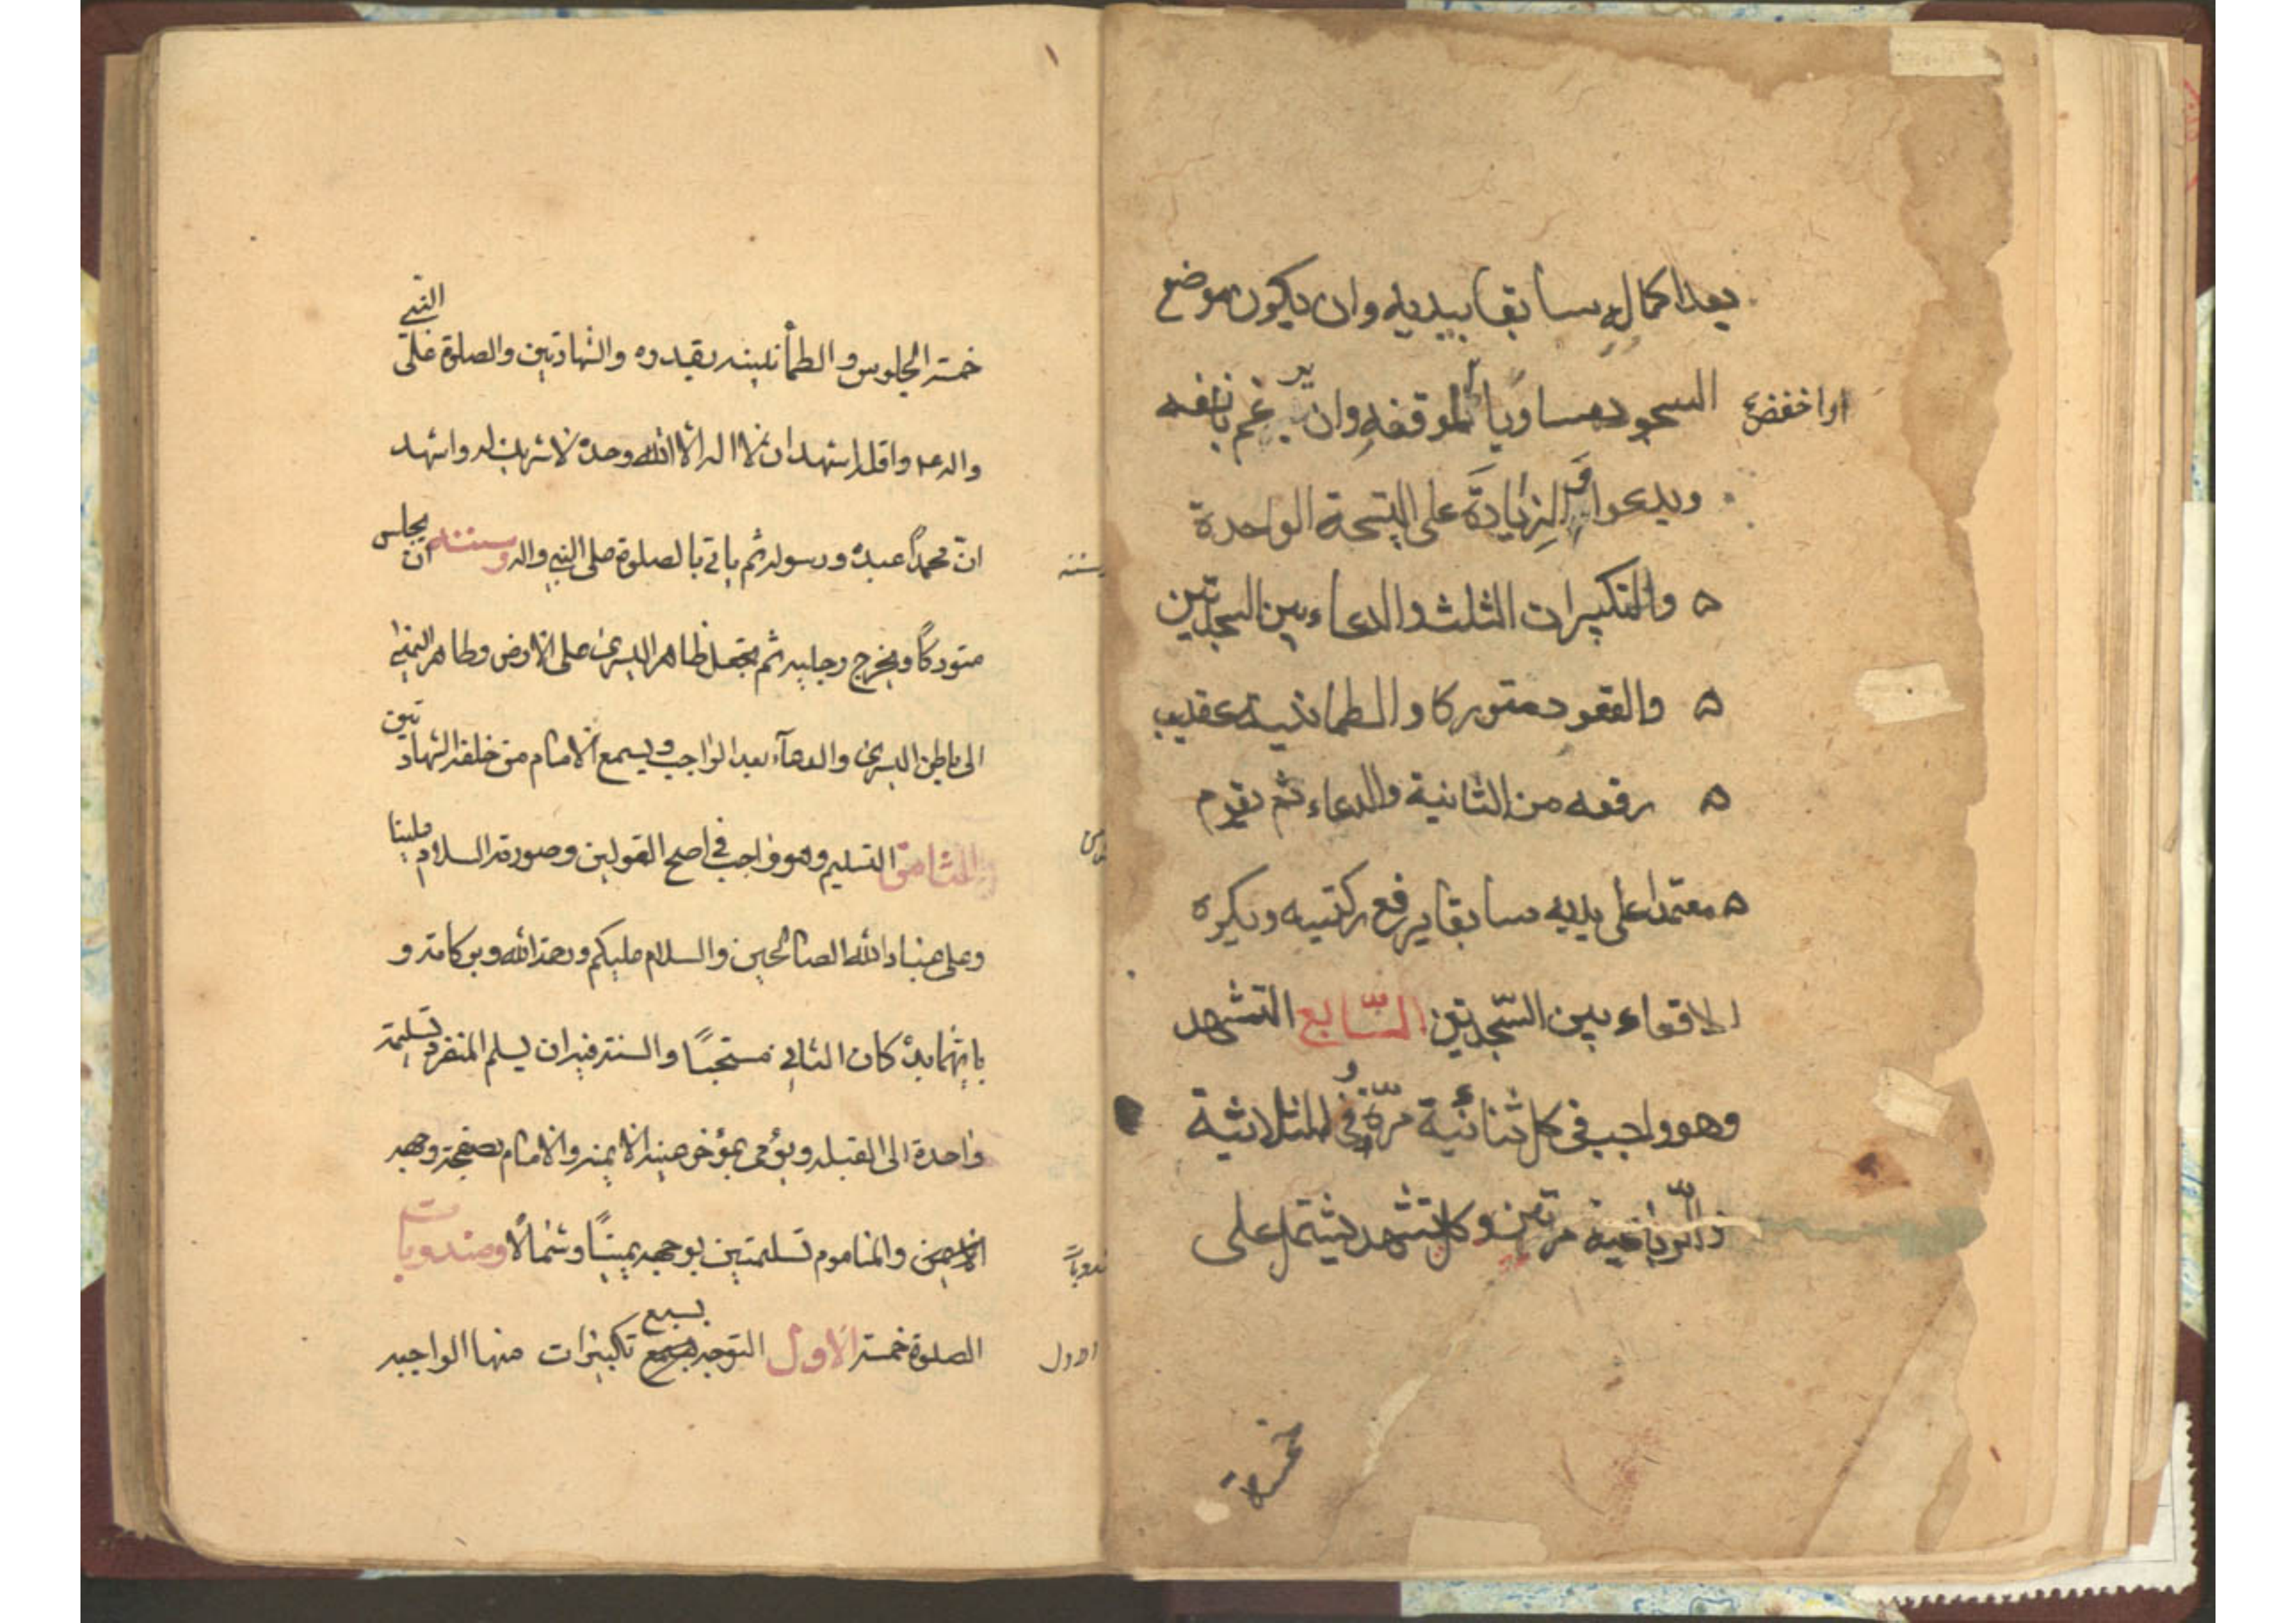 بعد اكماله سابقا بيديه وان يكون موضع
السجود مساويا لموقفه وان يرغم بانفه
او اخفض
ويدعوا و الزيادة على التسبيحة الواحدة
والتكبيرات الثلث والدعاء بين السجدتين
والقعود متوركا والطمانينة عقيب
رفعه من الثانية والدعاء ثم يقوم
معتمدا على يديه سابقا يرفع ركبتيه ويكره
الاقعاء بين السجدتين السّابع التشهد
وهو واجب في كل ثنائية مرّة وفي الثلاثية
والرّباعية مرتين وكل تشهد يشتمل على
خمسة
١
خمسة الجلوس و الطمأنينه بقدره والشهادتين والصلوة على النبي
واله واقله اشهد ان لا اله الا الله وحده لا شريك له واشهد
انّ محمداً عبده ورسوله ثم ياتي بالصلوة على النبي واله وسننه ان يجلس
متوركاً ويخرج رجليه ثم يجعل ظاهر اليسرى على الارض وظاهر اليمنى
الى باطن اليسرى والدعآء بعد الواجب ويسمع الامام من خلفه الشهادتين
والثامن التسليم وهو واجب في اصح القولين وصورة السلام علينا
وعلى عباد الله الصالحين والسلام عليكم ورحمة الله وبركاته و
بايهما بدء كان الثاني مستحبّاً والسنة فيه ان يسلم المنفرد تسليمة
واحدة الى القبله ويؤمى بمؤخر عينه الايمنه والامام بصفحة وجهه
الايمن والماموم تسليمتين بوجهه يميناً وشمالاً ومندوبات
الصلوة خمسة الاول التوجه بسبع تكبيرات منها الواجبه